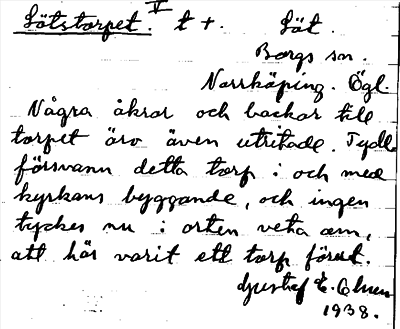 Lötstorpet. V t +. Löt.
Borgs sn.
Norrköping. Ögl.
Några åkrar och backar till
torpet äro även utritade. Tydl.
försvann detta torp i och med
kyrkans byggande, och ingen
tyckes nu i orten veta om,
att här varit ett torp förut.
Gustaf E.
1938.